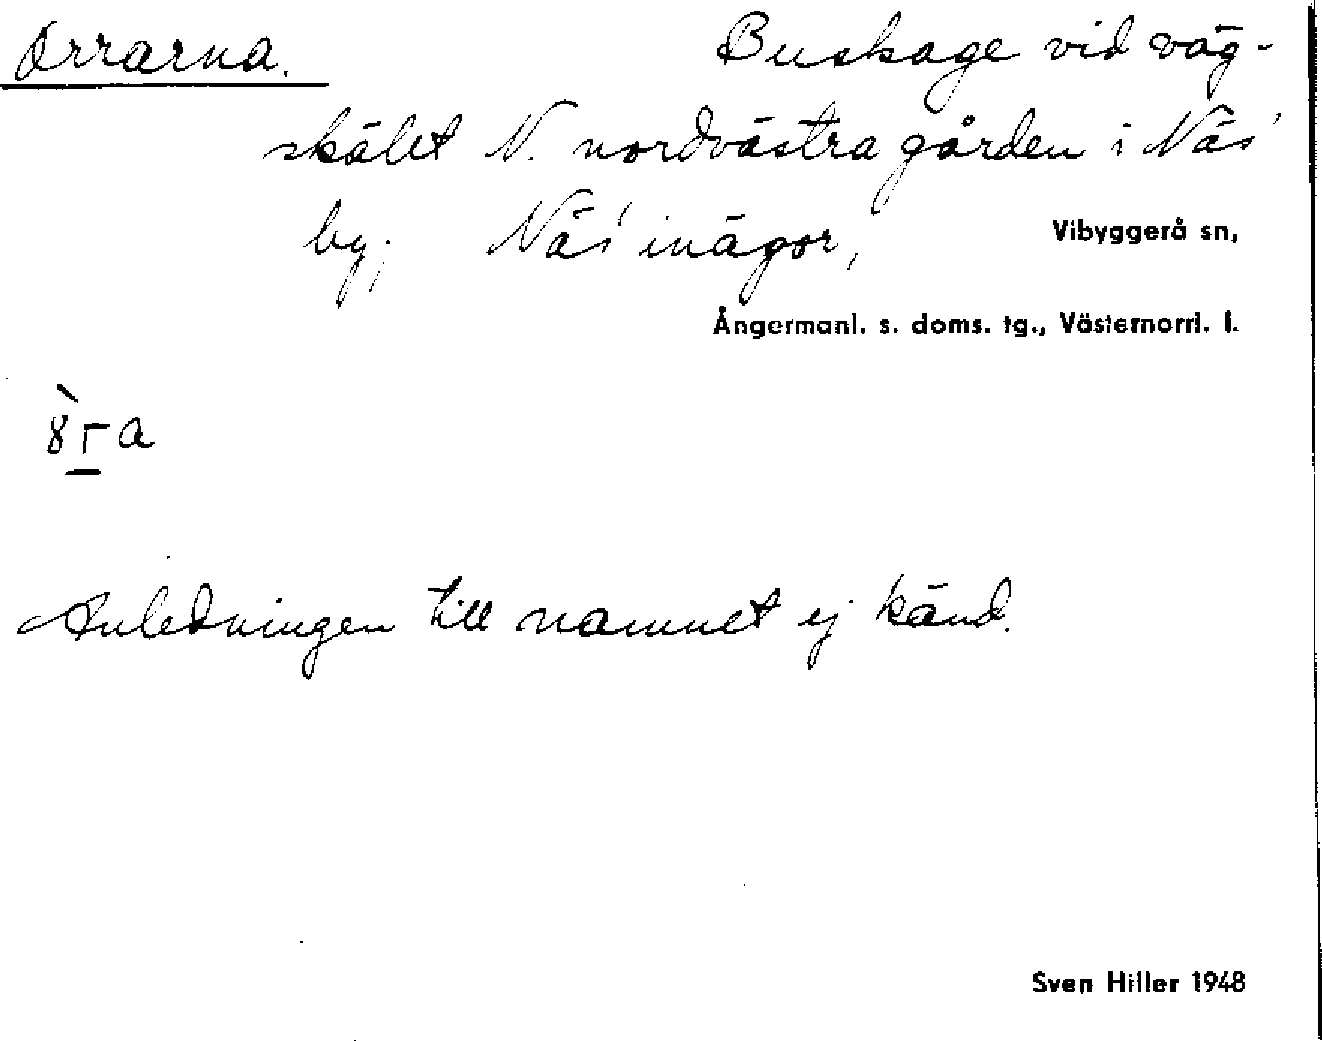 Orrarna. Buskage vid väg-
skälet N. nordvästra gården i Näs'
by; Näs' inägor, Vibyggerå sn,
Ångermanl. s. doms. tg., Västernorrl. l.
Anledningen till namnet ej känd.
Sven Hiller 1948